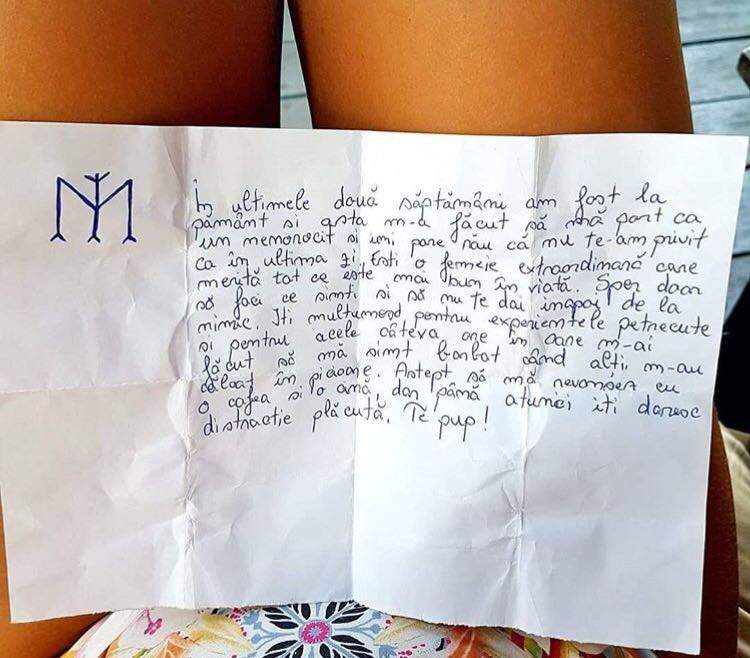 În ultimele două săptămâni am fost la
pământ si asta m-a făcut să mă port ca
un nemorocit si imi pare rău că nu te-am privit
ca în ultima zi. Esti o femeie extraordinară care
merită tot ce este mai bun în viată. Sper doar
să faci ce simti si să nu te dai înapoi de la
nimic. Iti multumesc pentru experientele petrecute
si pentru acele câteva ore în care m-ai
făcut să mă simt barbat când altii m-au
călcat în picioare. Astept să mă revansez cu
o cafea si o amă, dar până atunci iti doresc
distractie plăcută. Te pup!